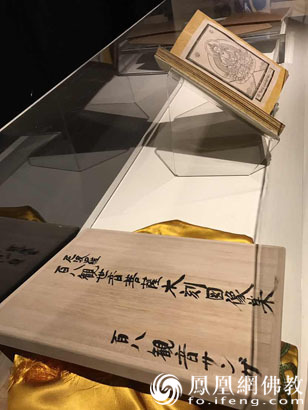 百八観世音菩薩木刻図像集
百八観音サンガ
鳳凰網佛教
fo.ifeng.com